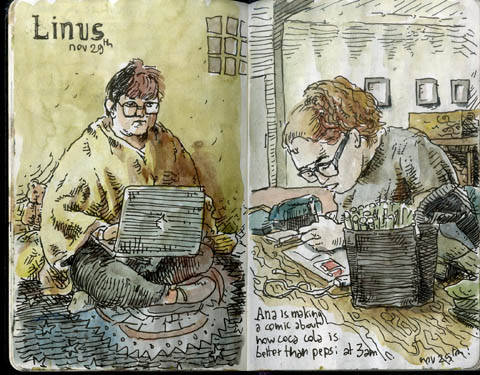 Linus
nov 29th
Ana is making
a comic about
how coca cola is
better than pepsi at 3am